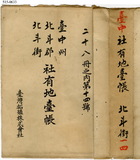 臺中 社有地臺帳
二十八冊之內第十四號
臺中州
北斗郡
北斗街
社有地臺帳
臺灣拓殖株式會社